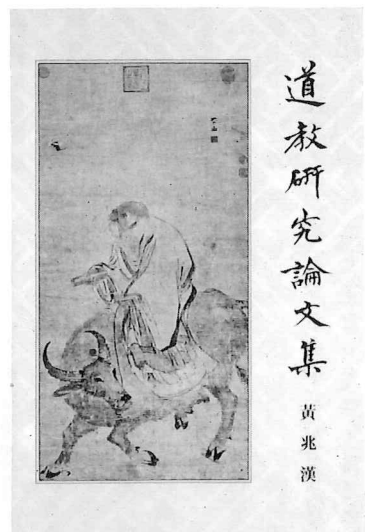 道教研究論文集
黃兆漢